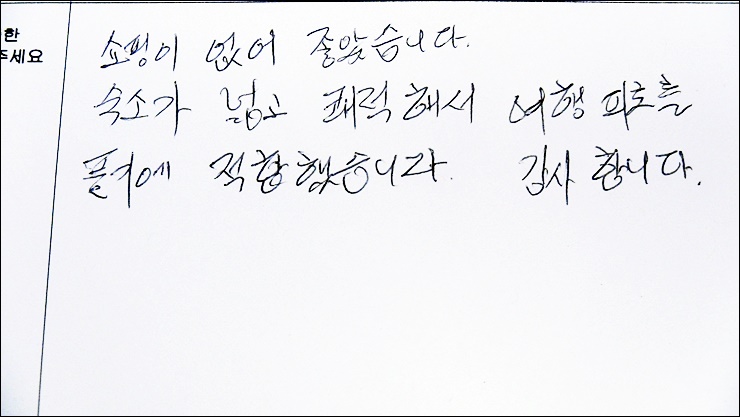 한
주세요
쇼핑이 없어 좋았습니다.
숙소가 넓고 쾌적해서 여행 피로를
풀기에 적합했습니다. 감사합니다.